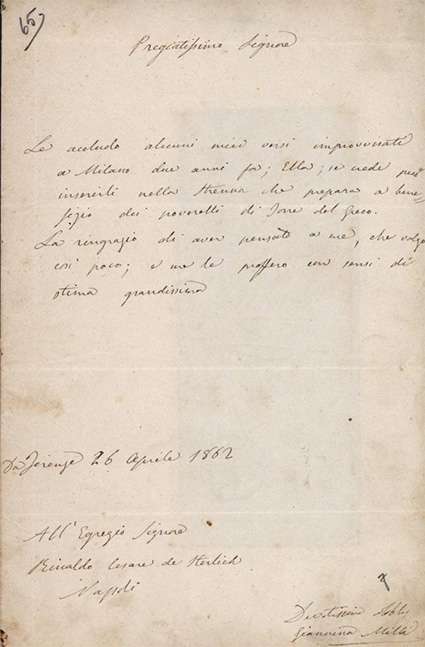 65
Pregiatissimo Signore
Le acchiudo alcuni miei versi improvvisati
a Milano due anni fa; Ella, se crede può
inserirli nella strenna che prepara a bene-
fizio dei poveretti di Torre del Greco.
La ringrazio di aver pensato a me, che valgo
così poco; e me le proffero con sensi di
stima grandissima
Da Firenze 26 Aprile 1862
All' Egregio Signore
Rinaldo Cesare de Sterlich
Napoli
Devotissima Obbl.
Giannina Milli